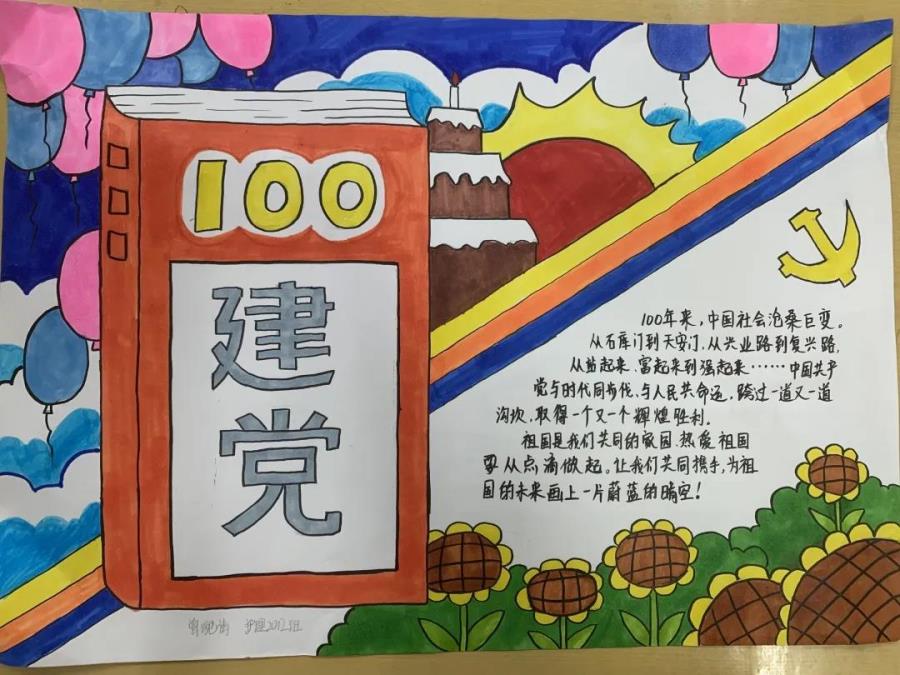 100
建
党
100年来，中国社会沧桑巨变。
从石库门到天安门，从兴业路到复兴路，
从站起来、富起来到强起来……中国共产
党与时代同步伐，与人民共命运，跨过一道又一道
沟坎，取得一个又一个辉煌胜利。
祖国是我们共同的家园，热爱祖国
要从点滴做起。让我们共同携手，为祖
国的未来画上一片蔚蓝的晴空！